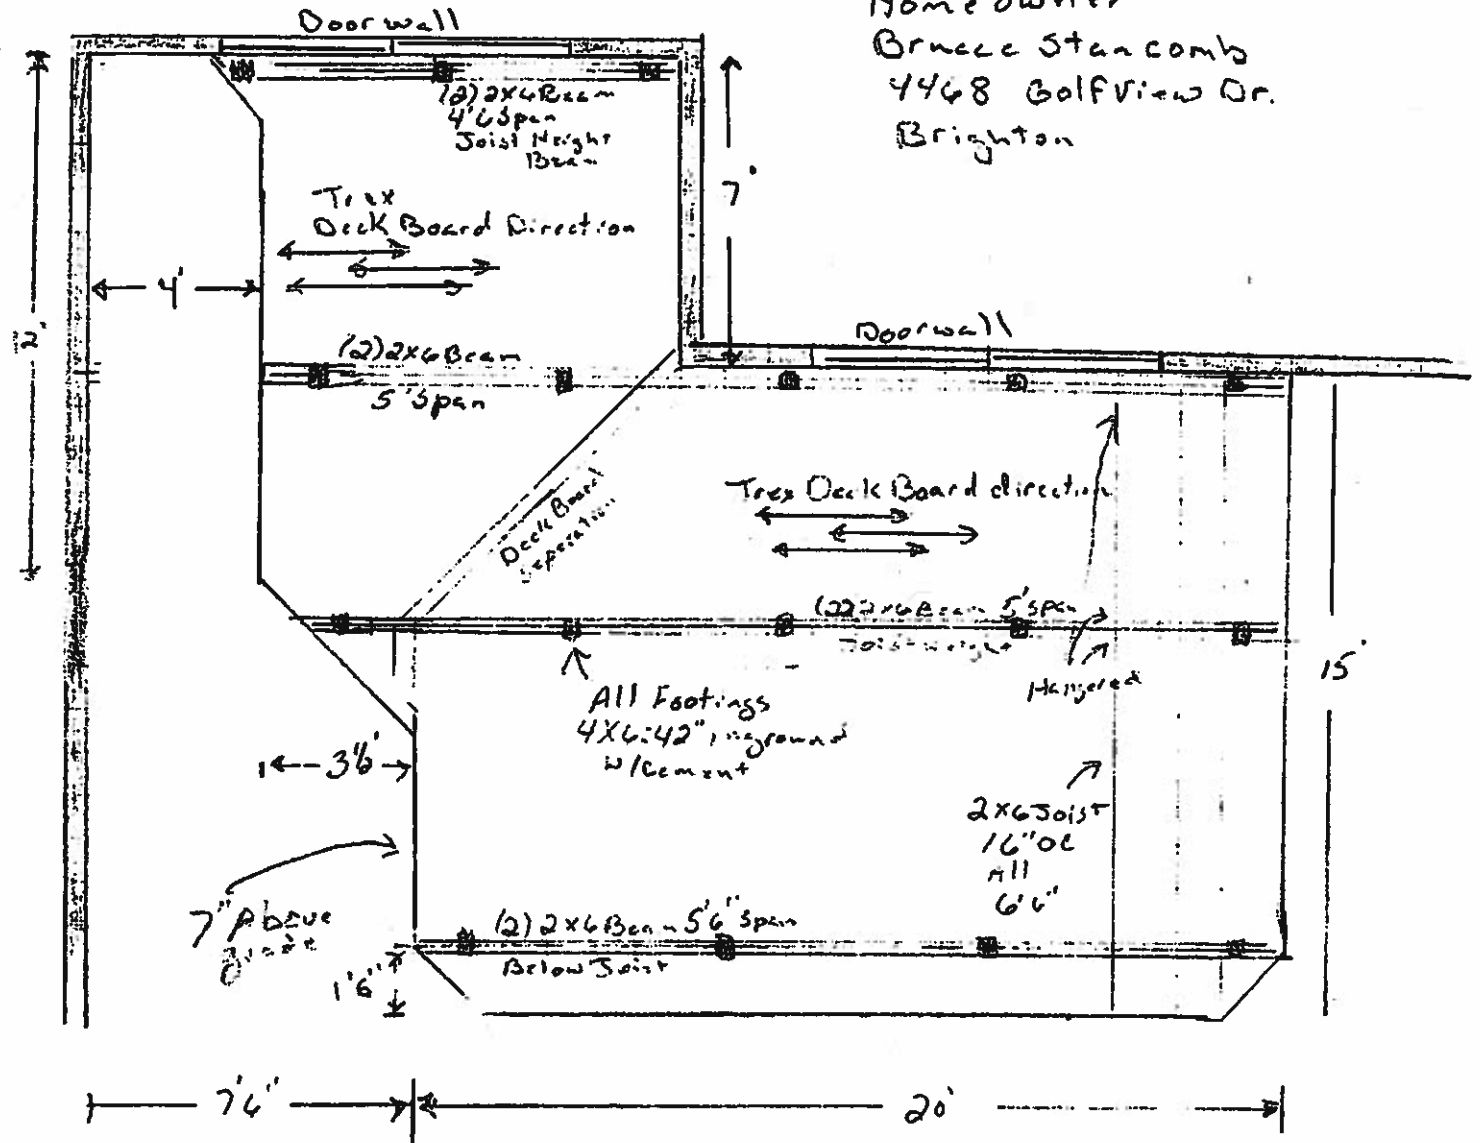 Doorwall
Homeowner
Brucee Stancomb
4468 Golfview Dr.
Brighton
(2) 2x6 Beam
4'6 Span
Joist Height
Beam
7'
Trex
Deck Board Direction
4'
2'
Doorwall
(2) 2x6 Beam
5' Span
Trex Deck Board direction
Deck Board
Seperation
(2) 2x6 Beam 5' Span
Hangered
15'
All Footings
4X6:42" inground
W/Cement
3'6'
2x6 Joist
16" OC
All
6'6"
7" Above
grade
(2) 2x6 Beam 5'6" Span
Below Joist
1'6"
7'6"
20'